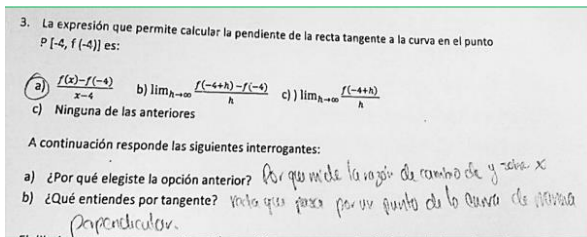 3. La expresión que permite calcular la pendiente de la recta tangente a la curva en el punto
P [-4, f (-4)] es:
a) f(x)−f(−4) / x−4 b) lim h→∞ f(−4+h) −f(−4) / h c) ) lim h→∞ f(−4+h) / h
c) Ninguna de las anteriores
A continuación responde las siguientes interrogantes:
a) ¿Por qué elegiste la opción anterior? Por que mide la razón de cambio de y sobre x
b) ¿Qué entiendes por tangente? que pasa por un punto de la curva de manera
perpendicular.